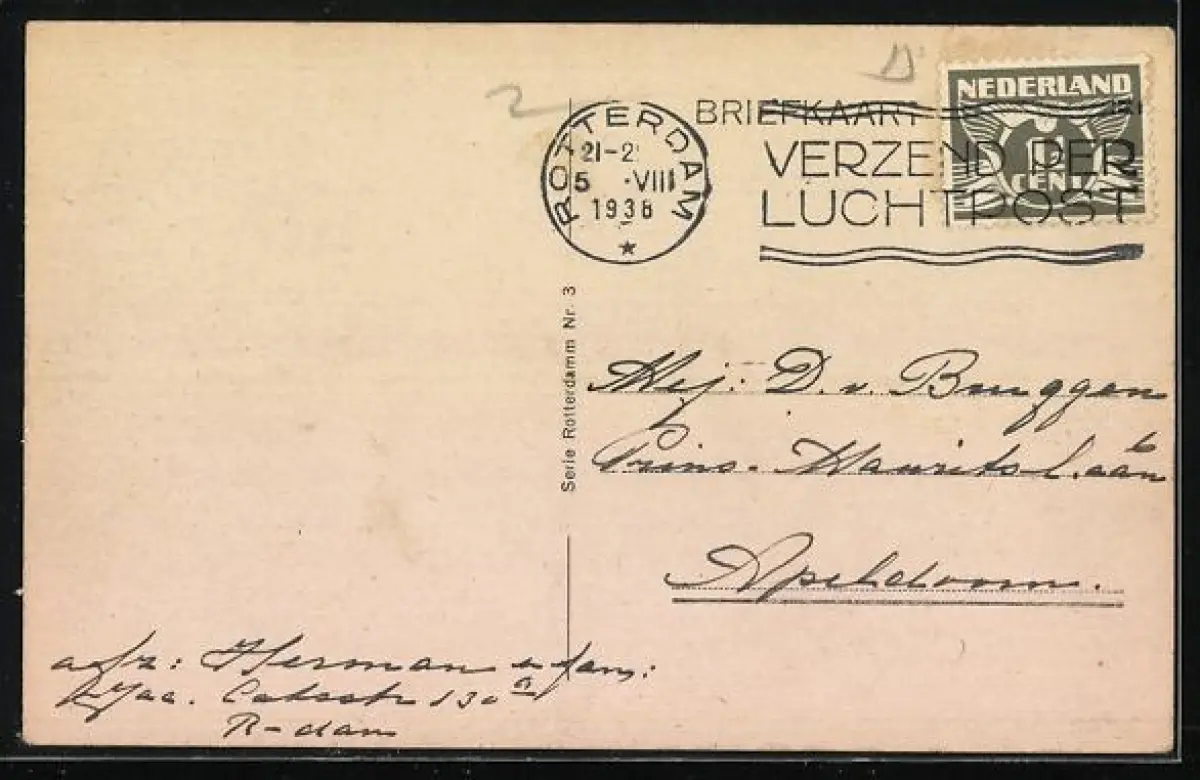 BRIEFKAART
NEDERLAND
CENT
ROTTERDAM
21-2
5 -VIII
1938
VERZEND PER
LUCHTPOST
Serie Rotterdamm Nr. 3
Mej: D. v. Bruggen
Prins-Mauritslaan 6
Apeldoorn.
afz: Herman en fam:
Jac. Catsstr 130a
R-dam